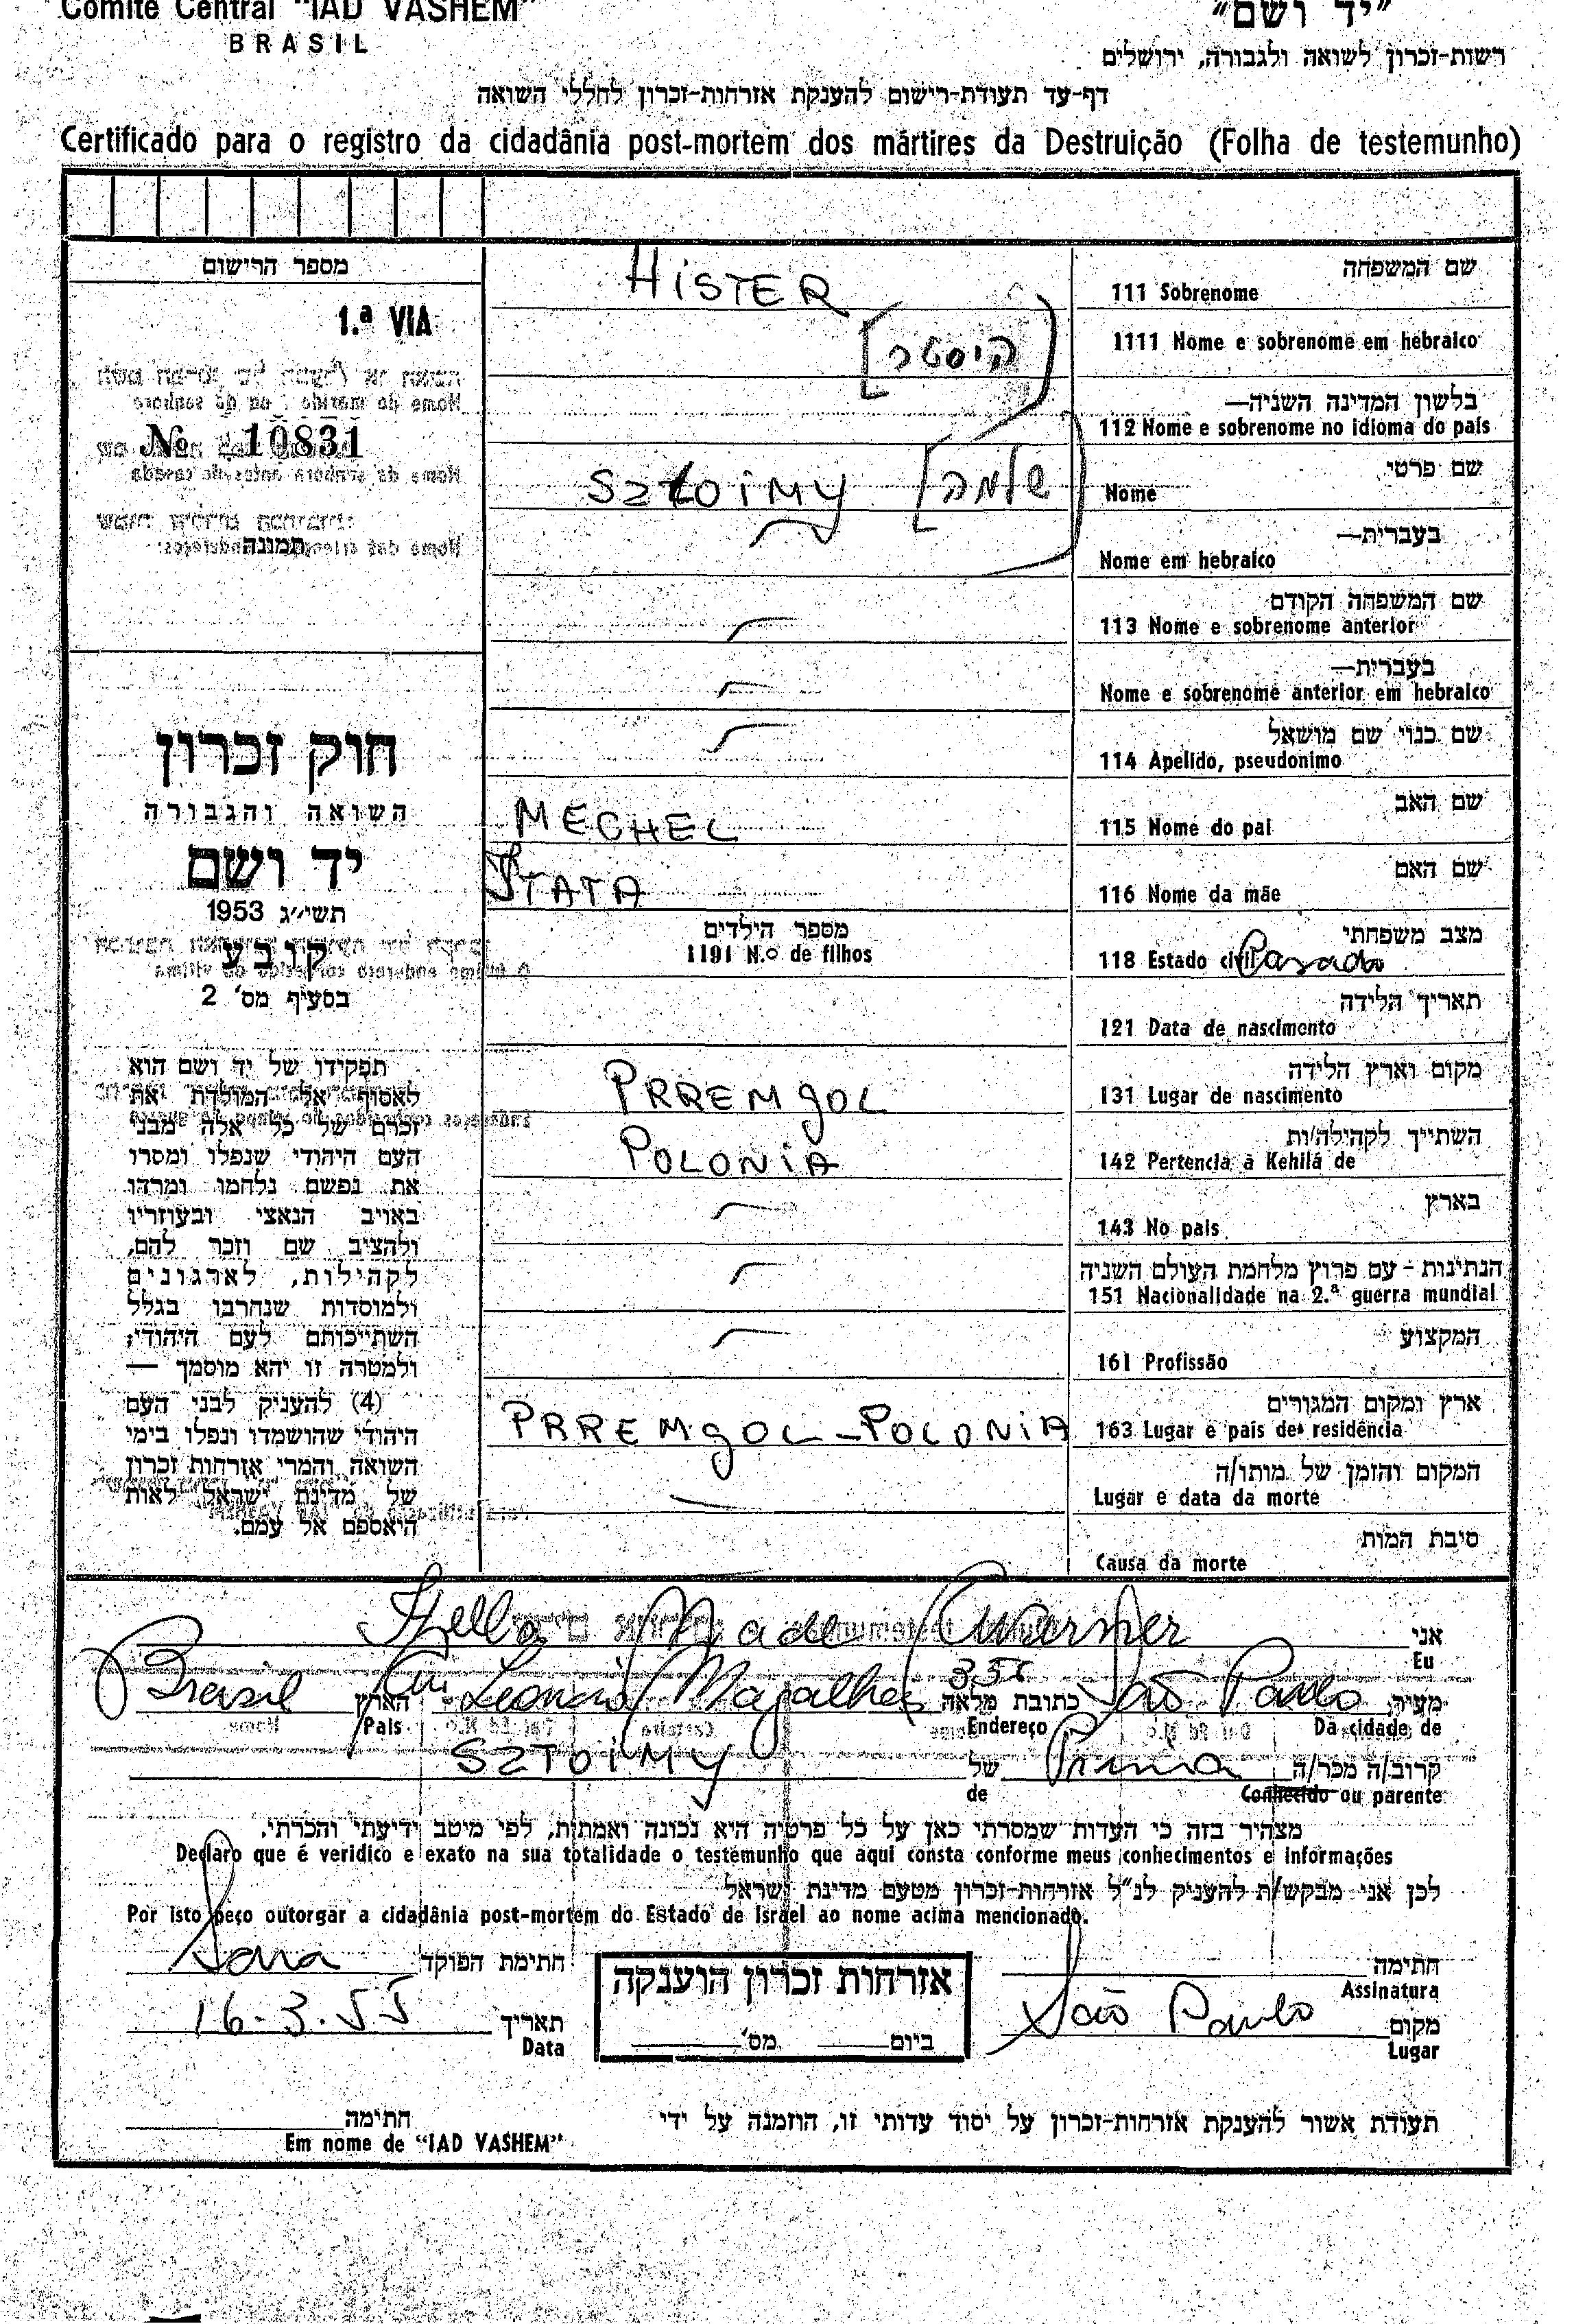 Comité Central "IAD VASHEM"
BRASIL
"יד ושם"
רשות-זכרון לשואה ולגבורה, ירושלים
דף-עד תעודת-רישום להענקת אזרחות-זכרון לחללי השואה
Certificado para o registro da cidadânia post-mortem dos mártires da Destruição (Folha de testemunho)
מספר הרישום
1.ª VIA
№ 10831
תמונה
חוק זכרון
השואה והגבורה
יד ושם
תשי״ג 1953
קובע
בסעיף מס' 2
תפקידו של יד ושם הוא
לאסוף אל המולדת את
זכרם של כל אלה מבני
העם היהודי שנפלו ומסרו
את נפשם נלחמו ומרדו
באויב הנאצי ובעוזריו
ולהציב שם וזכר להם,
לקהילות, לארגונים
ולמוסדות שנחרבו בגלל
השתייכותם לעם היהודי;
ולמטרה זו יהא מוסמך —
(4) להעניק לבני העם
היהודי שהושמדו ונפלו בימי
השואה והמרי אזרחות זכרון
של מדינת ישראל לאות
היאספם אל עמם.
שם המשפחה
111 Sobrenome HISTER
1111 Nome e sobrenome em hebraico [היסטר]
בלשון המדינה השניה—
112 Nome e sobrenome no idioma do país
שם פרטי
Nome SztoiMy [שלמה]
בעברית—
Nome em hebraico
שם המשפחה הקודם
113 Nome e sobrenome anterior
בעברית—
Nome e sobrenome anterior em hebraico
שם כנוי שם מושאל
114 Apelido, pseudonimo
שם האב
115 Nome do pai MECHEL
שם האם
116 Nome da mãe TATA
מצב משפחתי
118 Estado civil Casado
מספר הילדים
1191 N.o de filhos
תאריך הלידה
121 Data de nascimento
מקום וארץ הלידה
131 Lugar de nascimento PRREMgOL
השתייך לקהילה/ות
142 Pertencia à Kehilá de POLONIA
בארץ
143 No país
הנתינות - עם פרוץ מלחמת העולם השניה
151 Nacionalidade na 2.ª guerra mundial
המקצוע
161 Profissão
ארץ ומקום המגורים
163 Lugar e país de residência PRREMgOL - POLONIA
המקום והזמן של מותו/ה
Lugar e data da morte
סיבת המות
Causa da morte
אני
Eu Hella
מעיר São Paulo כתובת מלאה Leoncio Magalhães 356 הארץ Brasil
Da cidade de Endereço País
קרוב/ה מכר/ה Prima של SZTOIMY
Conhecido ou parente de
מצהיר בזה כי העדות שמסרתי כאן על כל פרטיה היא נכונה ואמתית, לפי מיטב ידיעתי והכרתי.
Declaro que é verídico e exato na sua totalidade o testemunho que aqui consta conforme meus conhecimentos e informações
לכן אני מבקש/ת להעניק לנ״ל אזרחות-זכרון מטעם מדינת ישראל
Por isto peço outorgar a cidadânia post-mortem do Estado de Israel ao nome acima mencionado.
חתימה
Assinatura
חתימת הפוקד Sara
אזרחות זכרון הוענקה
ביום מס'
מקום São Paulo
Lugar
תאריך 16-3.55
Data
תעודת אשור להענקת אזרחות-זכרון על יסוד עדותי זו, הוזמנה על ידי
חתימה
Em nome de "IAD VASHEM"